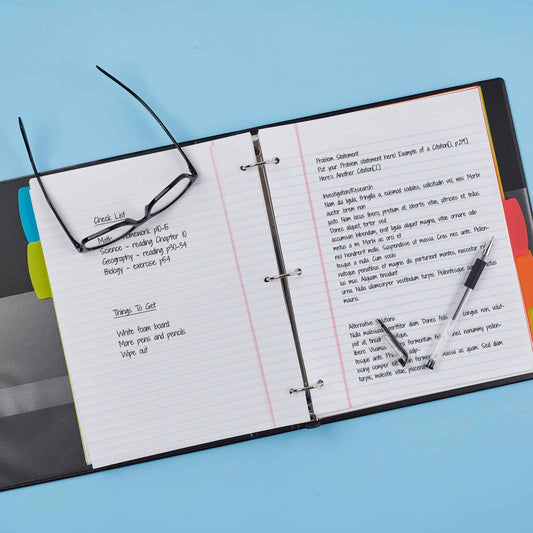 Check List
Math - homework p10-15
Science - reading Chapter 10
Geography - reading p30-34
Biology - exercise p54
Things To Get
White foam board
More pens and pencils
Wipe out
Problem Statement
Put your Problem statement here! Example of a Citation[1, p.219].
Here's Another Citation[2]
Investigation/Research
Nam dui ligula, fringilla a, euismod sodales, sollicitudin vel, wisi. Morbi
auctor lorem non
justo. Nam lacus libero, pretium at, lobortis vitae, ultricies et tellus.
Donec aliquet, tortor sed
accumsan bibendum, erat ligula aliquet magna, vitae ornare odio
metus a mi. Morbi ac orci et
nisl hendrerit mollis. Suspendisse ut massa. Cras nec ante. Pellen-
tesque a nulla. Cum sociis
natoque penatibus et magnis dis parturient montes, nascetur
lus mus. Aliquam tincidunt
urna. Nulla ullamcorper vestibulum turpis. Pellentesque
mauris.
Alternative Solutions
Nulla malesuada porttitor diam. Donec congue non, volut-
pat at, tincidunt
libero. Vivamus fermentum
tesque Phasellus adipi- Donec nonummy pellen-
scing semper elit massa ac quam. Sed diam
turpis, molestie vitae,